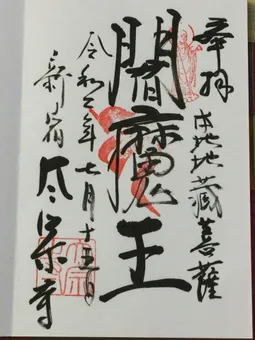 奉拝
本地地藏菩薩
閻魔王
令和二年七月十五日
新宿 太宗寺